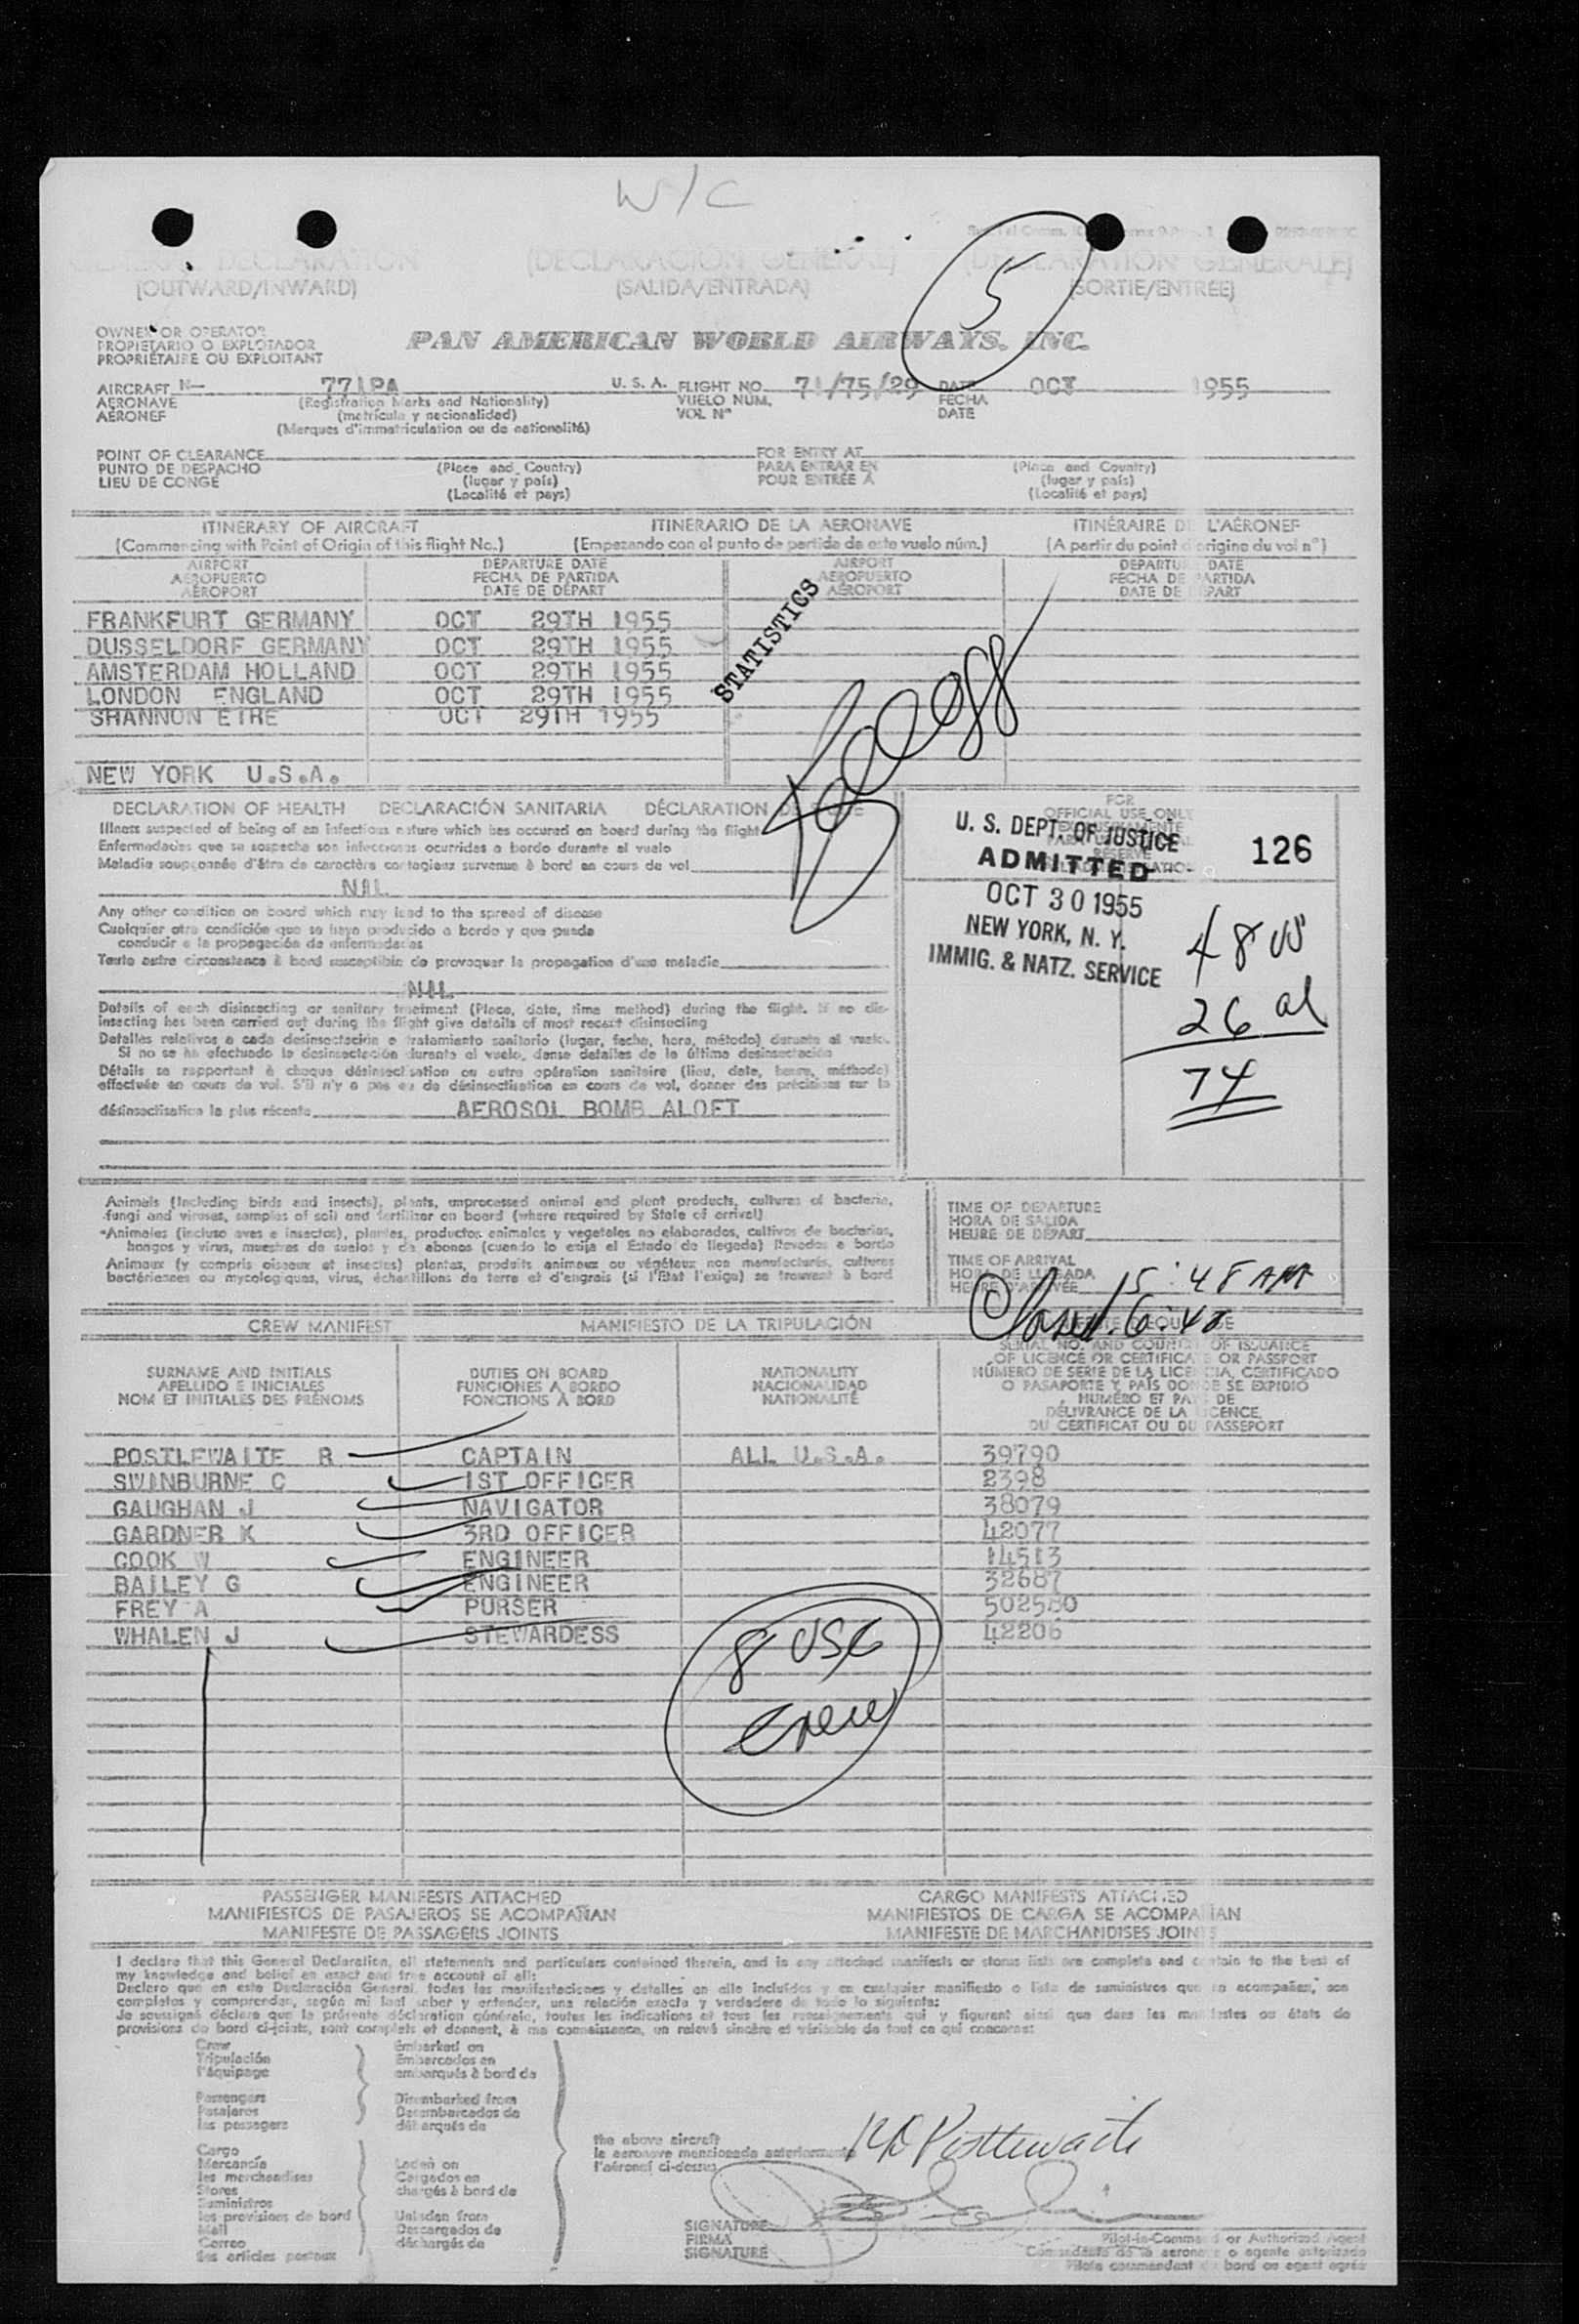 W/C
GENERAL DECLARATION (DECLARACION GENERAL) (DECLARATION GENERALE)
(OUTWARD/INWARD) (SALIDA/ENTRADA) (SORTIE/ENTRÉE)
5
OWNER OR OPERATOR
PROPIETARIO O EXPLOTADOR
PROPRIÉTAIRE OU EXPLOITANT
PAN AMERICAN WORLD AIRWAYS, INC.
AIRCRAFT N- 771PA U.S.A. FLIGHT NO. 71/75/29 DATE OCT 1955
AERONAVE (Registration Marks and Nationality) VUELO NÚM. FECHA
AÉRONEF (matrícula y nacionalidad) VOL Nº DATE
(Marques d'immatriculation ou de nationalité)
POINT OF CLEARANCE FOR ENTRY AT
PUNTO DE DESPACHO (Place and Country) PARA ENTRAR EN (Place and Country)
LIEU DE CONGÉ (lugar y país) POUR ENTRÉE À (lugar y país)
(Localité et pays) (Localité et pays)
ITINERARY OF AIRCRAFT ITINERARIO DE LA AERONAVE ITINÉRAIRE DE L'AÉRONEF
(Commencing with Point of Origin of this flight No.) (Empezando con el punto de partida de este vuelo núm.) (A partir du point d'origine du vol nº)
AIRPORT DEPARTURE DATE AIRPORT DEPARTURE DATE
AEROPUERTO FECHA DE PARTIDA AEROPUERTO FECHA DE PARTIDA
AÉROPORT DATE DE DÉPART AÉROPORT DATE DE DÉPART
FRANKFURT GERMANY OCT 29TH 1955
DUSSELDORF GERMANY OCT 29TH 1955
AMSTERDAM HOLLAND OCT 29TH 1955
LONDON ENGLAND OCT 29TH 1955
SHANNON EIRE OCT 29TH 1955
NEW YORK U.S.A.
STATISTICS
DECLARATION OF HEALTH DECLARACIÓN SANITARIA DÉCLARATION DE
Illness suspected of being of an infectious nature which has occured on board during the flight
Enfermedades que se sospecha son infecciosas ocurridas a bordo durante el vuelo
Maladie soupçonnée d'être de caractère contagieux survenue à bord en cours de vol
NIL
Any other condition on board which may lead to the spread of disease
Cualquier otra condición que se haya producido a bordo y que pueda
conducir a la propagación de enfermedades
Toute autre circonstance à bord susceptible de provoquer la propagation d'une maladie
NIL
Details of each disinsecting or sanitary treatment (Place, date, time method) during the flight. If no dis-
insecting has been carried out during the flight give details of most recent disinsecting
Detalles relativos a cada desinsectación o tratamiento sanitario (lugar, fecha, hora, método) durante el vuelo.
Si no se ha efectuado la desinsectación durante el vuelo, dense detalles de la última desinsectación
Détails se rapportant à chaque désinsectisation ou autre opération sanitaire (lieu, date, heure, méthode)
effectuée en cours de vol. S'il n'y a pas eu de désinsectisation en cours de vol, donner des précisions sur la
désinsectisation la plus récente AEROSOL BOMB ALOFT
FOR
OFFICIAL USE ONLY
U. S. DEPT. OF JUSTICE
ADMITTED
OCT 30 1955
NEW YORK, N. Y.
IMMIG. & NATZ. SERVICE
126
48 US
26 al
74
Animals (Including birds and insects), plants, unprocessed animal and plant products, cultures of bacteria,
fungi and viruses, samples of soil and fertilizer on board (where required by State of arrival)
Animales (incluso aves e insectos), plantas, productos animales y vegetales no elaborados, cultivos de bacterias,
hongos y virus, muestras de suelos y de abonos (cuando lo exija el Estado de llegada) llevados a bordo
Animaux (y compris oiseaux et insectes) plantes, produits animaux ou végétaux non manufacturés, cultures
bactériennes ou mycologiques, virus, échantillons de terre et d'engrais (si l'État l'exige) se trouvant à bord
TIME OF DEPARTURE
HORA DE SALIDA
HEURE DE DÉPART
TIME OF ARRIVAL
HORA DE LLEGADA
HEURE D'ARRIVÉE 5:48 AM
6:40
CREW MANIFEST MANIFIESTO DE LA TRIPULACIÓN
SURNAME AND INITIALS DUTIES ON BOARD NATIONALITY
APELLIDO E INICIALES FUNCIONES A BORDO NACIONALIDAD
NOM ET INITIALES DES PRÉNOMS FONCTIONS À BORD NATIONALITÉ
SERIAL NO. AND COUNTRY OF ISSUANCE
OF LICENCE OR CERTIFICATE OR PASSPORT
NÚMERO DE SERIE DE LA LICENCIA, CERTIFICADO
O PASAPORTE Y PAÍS DONDE SE EXPIDIÓ
NUMÉRO ET PAYS DE
DÉLIVRANCE DE LA LICENCE,
DU CERTIFICAT OU DU PASSEPORT
POSTLEWAITE R CAPTAIN ALL U.S.A. 39790
SWINBURNE C 1ST OFFICER 2398
GAUGHAN J NAVIGATOR 38079
GARDNER K 3RD OFFICER 42077
COOK W ENGINEER 14513
BAILEY G ENGINEER 32687
FREY A PURSER 502580
WHALEN J STEWARDESS 42206
8 USC
Crew
PASSENGER MANIFESTS ATTACHED CARGO MANIFESTS ATTACHED
MANIFIESTOS DE PASAJEROS SE ACOMPAÑAN MANIFIESTOS DE CARGA SE ACOMPAÑAN
MANIFESTE DE PASSAGERS JOINTS MANIFESTE DE MARCHANDISES JOINTS
I declare that this General Declaration, all statements and particulars contained therein, and in any attached manifests or stores lists are complete and contain to the best of
my knowledge and belief an exact and true account of all:
Declaro que en esta Declaración General, todas las manifestaciones y detalles en ella incluídos y en cualquier manifiesto o lista de suministros que la acompañen, son
completos y comprenden, según mi leal saber y entender, una relación exacta y verdadera de todo lo siguiente:
Je soussigné déclare que la présente déclaration générale, toutes les indications et tous les renseignements qui y figurent ainsi que dans les manifestes ou états de
provisions de bord ci-joints, sont complets et donnent, à ma connaissance, un relevé sincère et véritable de tout ce qui concerne:
Crew Embarked on
Tripulación Embarcados en
l'équipage embarqués à bord de
Passengers Disembarked from
Pasajeros Desembarcados de
les passagers débarqués de
Cargo
Mercancía Laden on
les marchandises Cargados en
Stores chargés à bord de
Suministros
les provisions de bord Unladen from
Mail Descargados de
Correo déchargés de
les articles postaux
the above aircraft
la aeronave mencionada anteriormente
l'aéronef ci-dessus
RD Postlewaite
SIGNATURE
FIRMA
SIGNATURE
Pilot-in-Command or Authorized Agent
Comandante de la aeronave o agente autorizado
Pilote commandant de bord ou agent agréé